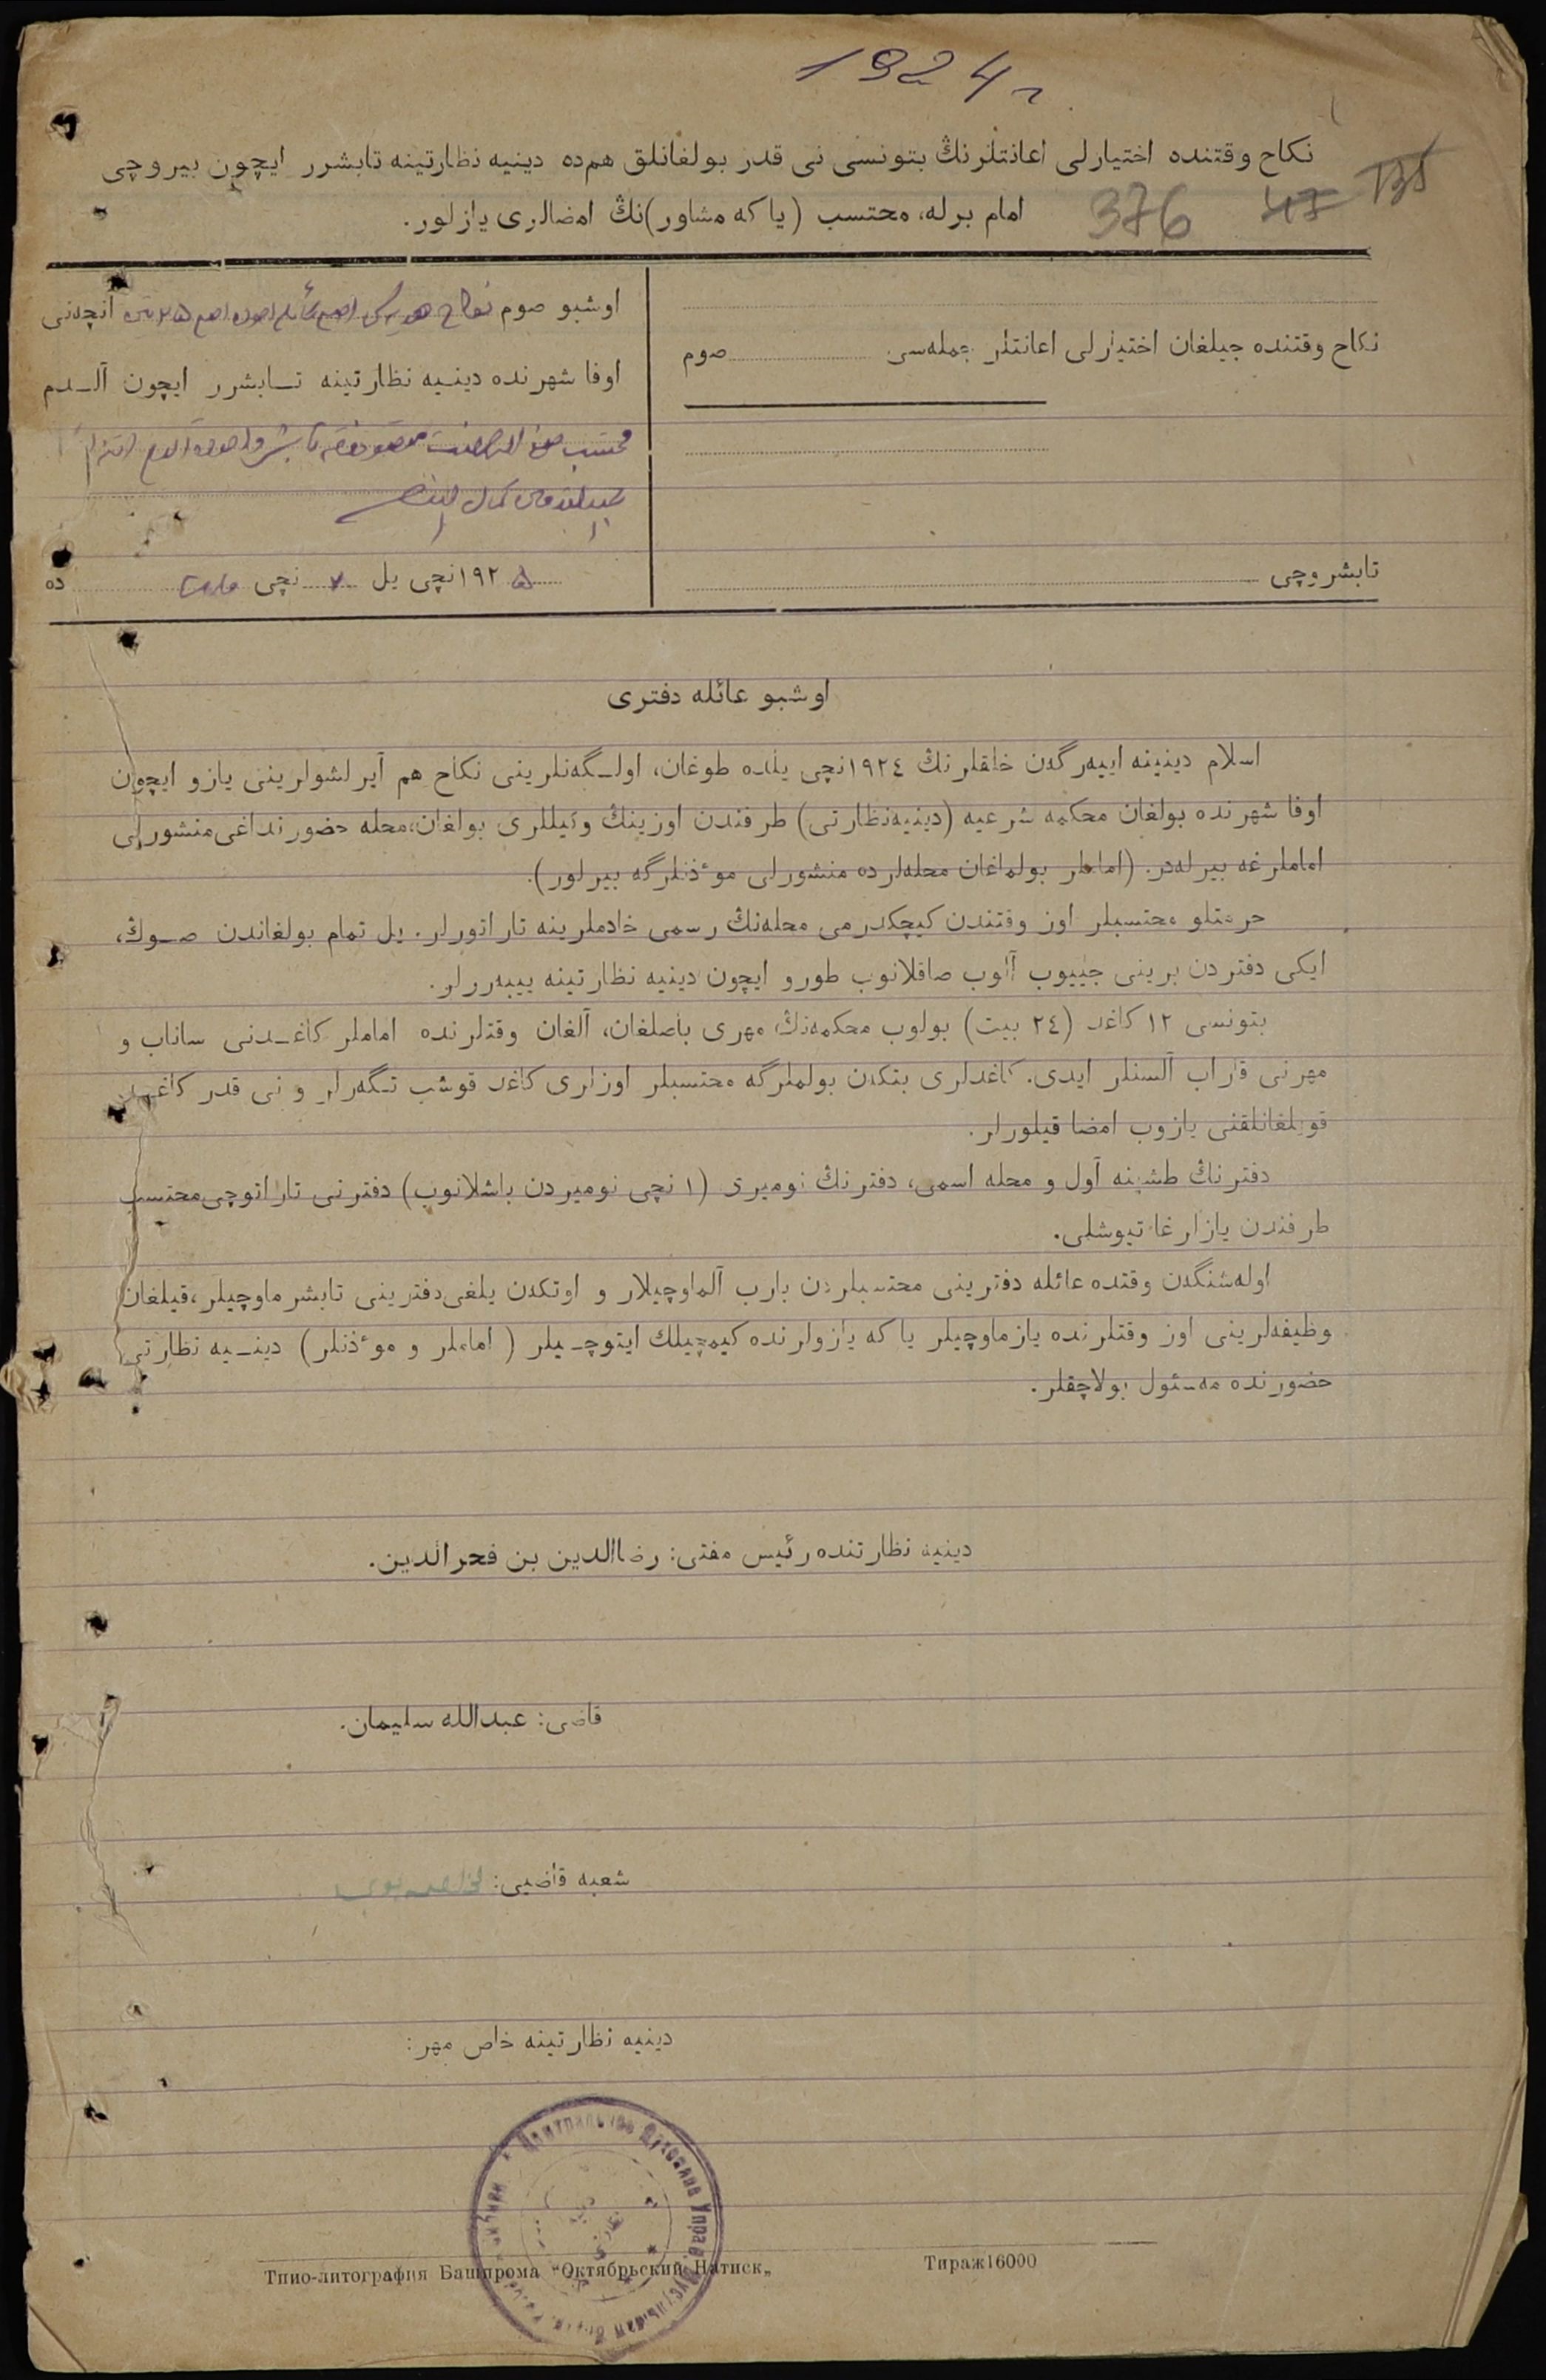 1924 г.
نكاح وقتنده اختيارلى اعانتلرنڭ بتونسى نى قدر بولغانلق هم‌ده دينيه نظارتينه تابشرر ايچون بيروچى
امام برله، محتسب (ياكه مشاور)نڭ امضالرى يازلور.
376 47 135
نكاح وقتنده جيلغان اختيارلى اعانتلر جمله‌سى صوم
تابشروچى
اوشبو صوم انچه‌نى
اوفا شهرنده دينيه نظارتينه تابشرر ايچون آلدم
١٩٢٥ نچى يل ٧ نچى مارت ده
اوشبو عائله دفترى
اسلام دينينه اييه‌رگه‌ن خلقلرنڭ ١٩٢٤نچى يلده طوغان، اولگه‌نلرينى نكاح هم آيرلشولرينى يازو ايچون
اوفا شهرنده بولغان محكمه شرعيه (دينيه‌نظارتى) طرفندن اوزينڭ وكيللرى بولغان، محله حضورنداغى منشورلى
اماملرغه بيرله‌در. (اماملر بولماغان محله‌لرده منشورلى موءذنلرگه بيرلور).
حرمتلو محتسبلر اوز وقتندن كيچكدرمى محله‌نڭ رسمى خادملرينه تاراتورلر. يل تمام بولغاندن صوڭ،
ايكى دفتردن برينى جييوب آلوب صاقلانوب طورو ايچون دينيه نظارتينه ييبه‌ررلر.
بتونسى ١٢ كاغد (٢٤ بيت) بولوب محكمه‌نڭ مهرى باصلغان، آلغان وقتلرنده اماملر كاغدنى ساناب و
مهرنى قاراب آلسنلر ايدى. كاغدلرى بتكدن بولملرگه محتسبلر اوزلرى كاغد قوشب تگه‌رلر و نى قدر كاغد
قويلغانلقنى يازوب امضا قيلورلر.
دفترنڭ طشينه آول و محله اسمى، دفترنڭ نوميرى (١ نچى نوميردن باشلانوب) دفترنى تاراتوچى محتسب
طرفندن يازارغا تيوشلى.
اوله‌شنگدن وقتده عائله دفترينى محتسبلردن بارب آلماوچيلار و اوتكدن يلغى دفترينى تابشرماوچيلر، قيلغان
وظيفه‌لرينى اوز وقتلرنده يازماوچيلر ياكه يازولرنده كيمچيلك ايتوچيلر (اماملر و موءذنلر) دينيه نظارتى
حضورنده مه‌سئول بولاچقلر.
دينيه نظارتنده رئيس مفتى: رضاالدين بن فخرالدين.
قاضى: عبدالله سليمان.
شعبه قاضيى:
دينيه نظارتينه خاص مهر:
Типо-литография Башпрома “Октябрьский Натиск„
Тираж16000